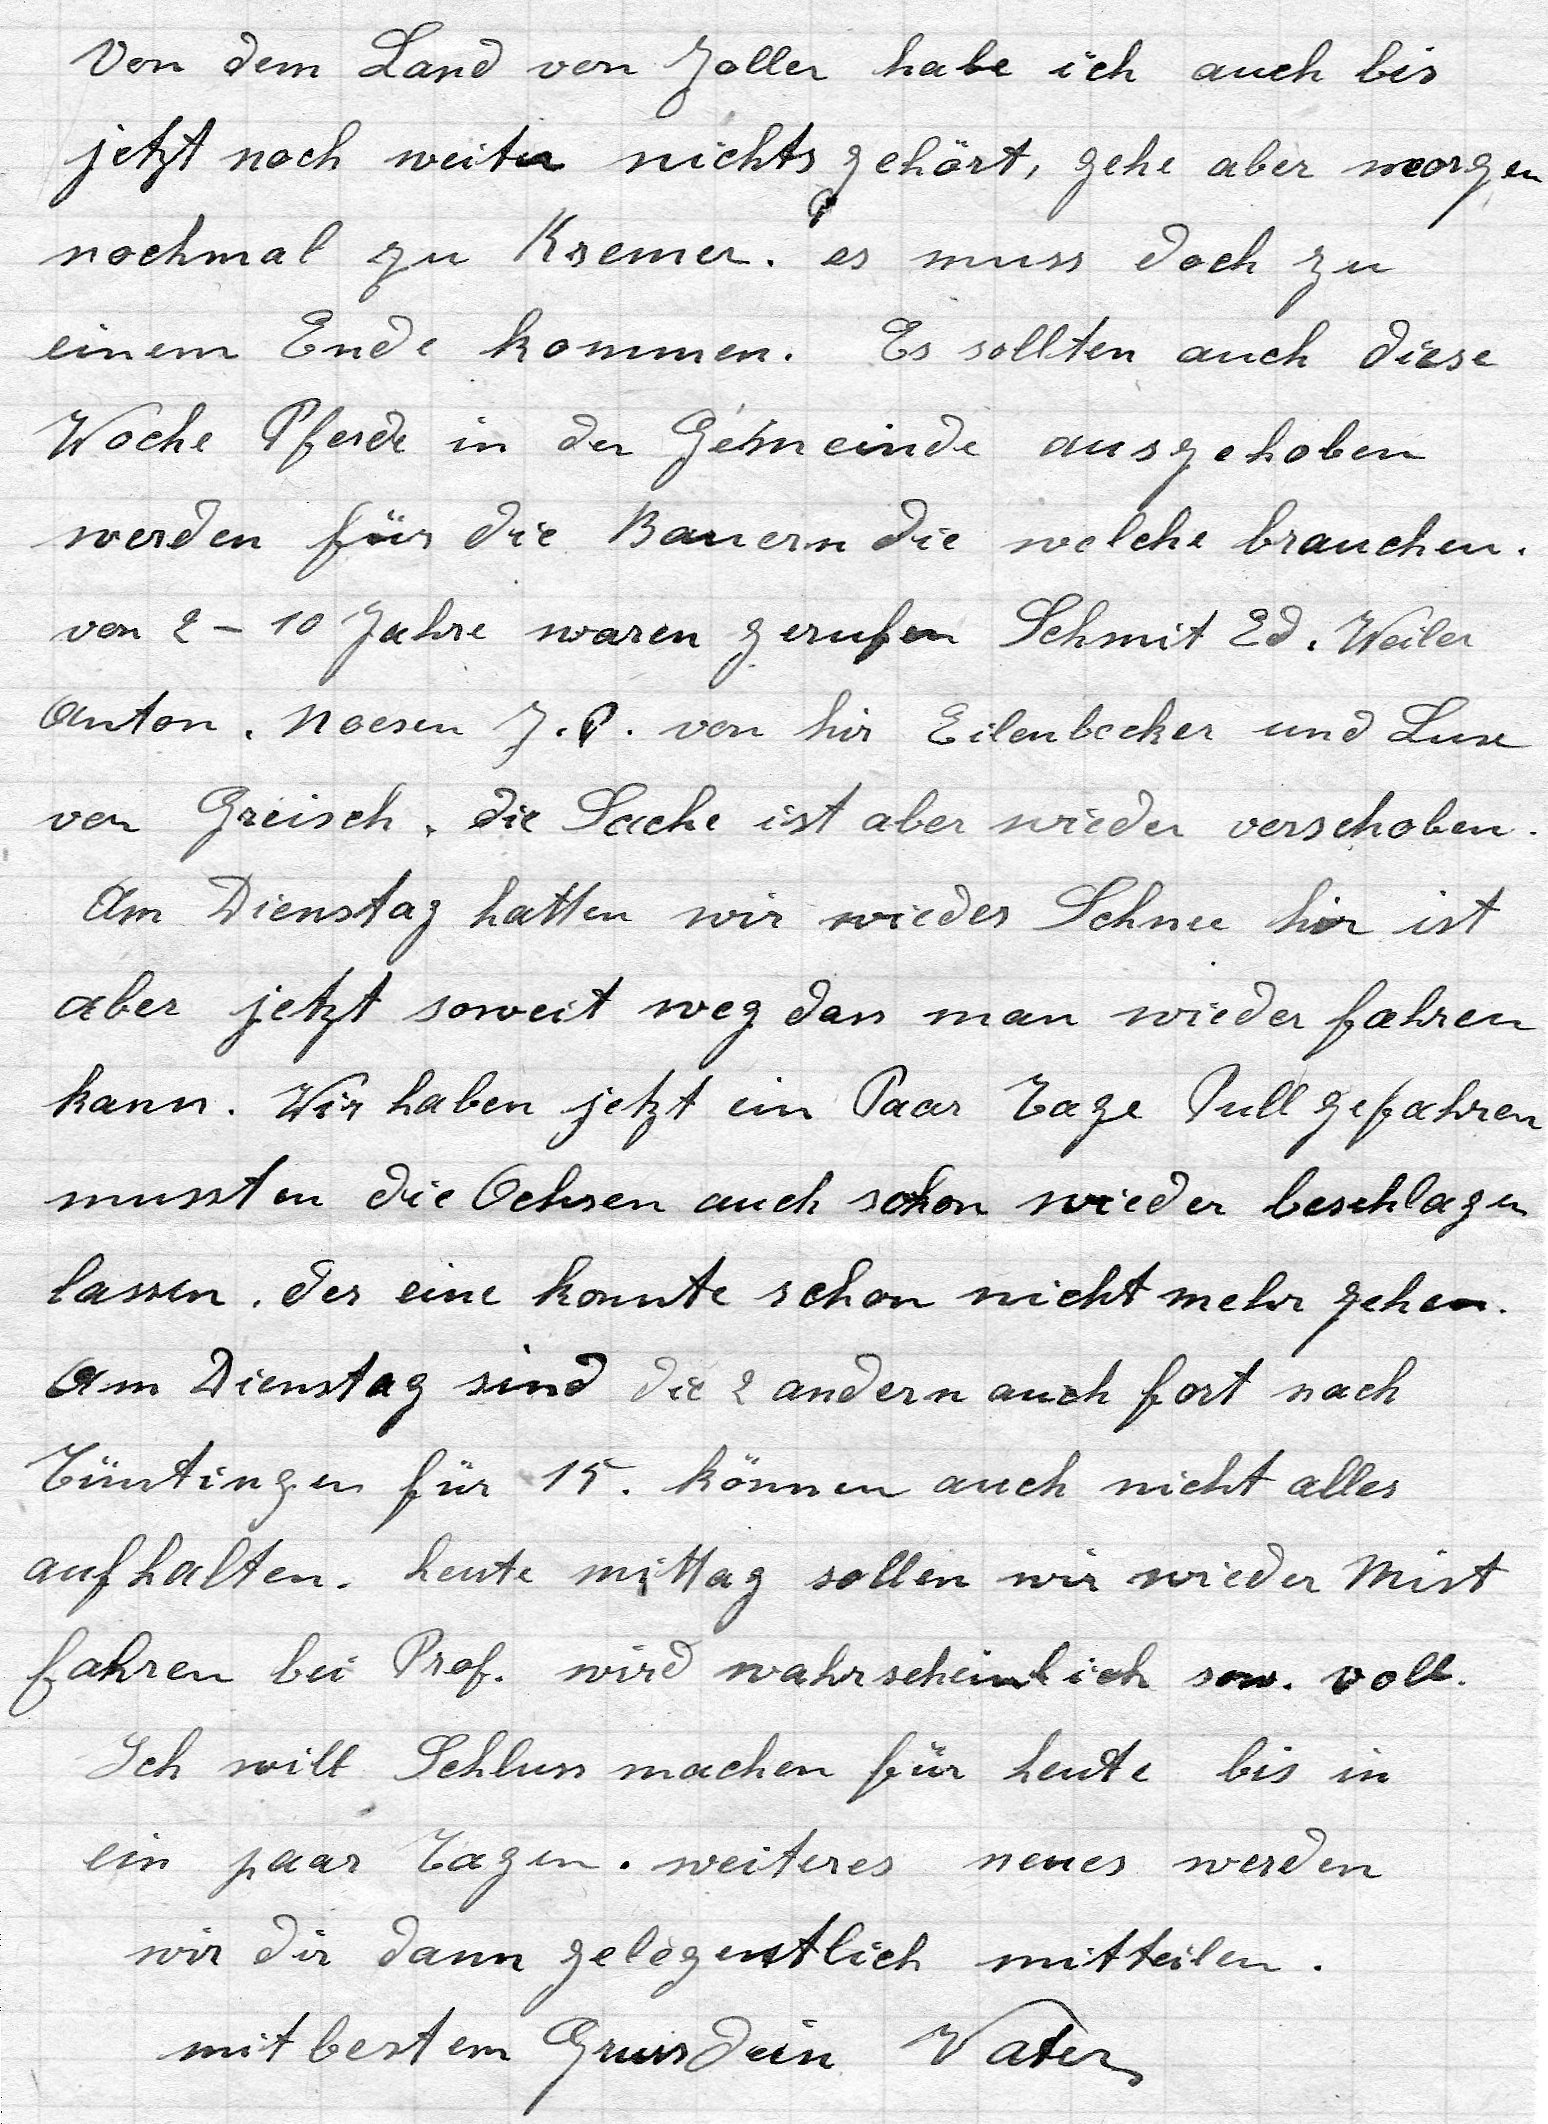 Von dem Land von Zoller habe ich auch bis
jetzt noch weiter nichts gehört, gehe aber morgen
nochmal zu Kremer. es muss doch zu
einem Ende kommen. Es sollten auch diese
Woche Pferde in der Gemeinde ausgehoben
werden für die Bauern die welche brauchen.
von 2 – 10 Jahre waren gerufen Schmit Ed. Weiler
Anton. Noesen J.P. von hir Eilenbecker und Luxe
von Greisch. die Sache ist aber wieder verschoben.
Am Dienstag hatten wir wieder Schnee hir ist
aber jetzt soweit weg dass man wieder fahren
kann. Wir haben jetzt ein Paar Tage Pull gefahren
mussten die Ochsen auch schon wieder beschlagen
lassen. der eine konnte schon nicht mehr gehen.
Am Dienstag sind die 2 andern auch fort nach
Tüntingen für 15. können auch nicht alles
aufhalten. heute mittag sollen wir wieder Mist
fahren bei Prof. wird wahrscheinlich voll.
Ich will Schluss machen für heute bis in
ein paar Tagen. weiteres neues werden
wir dir dann gelegentlich mitteilen.
mit bestem Gruss dein Vater